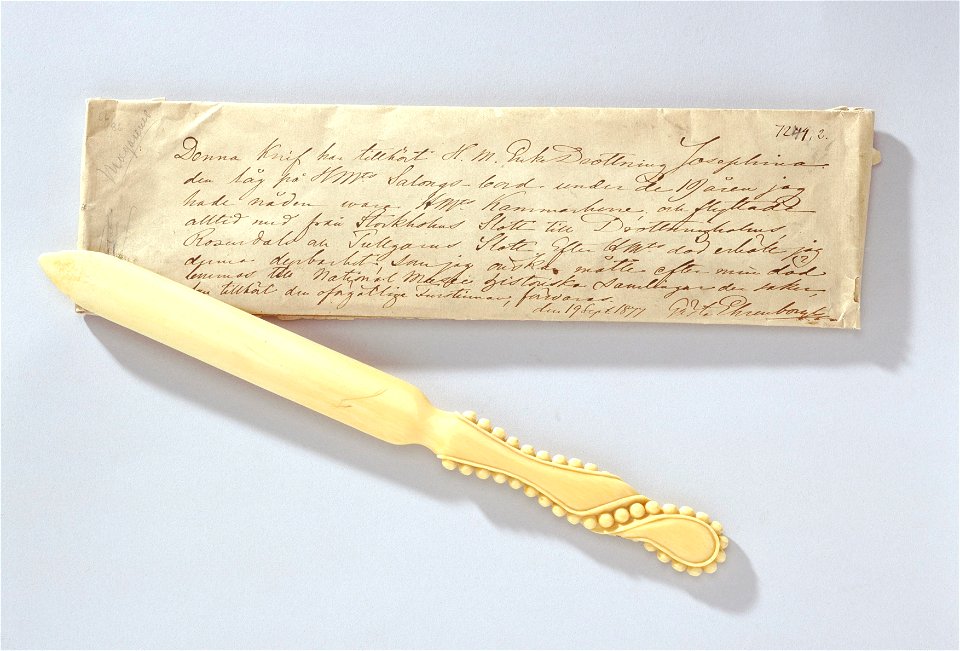 7244, 2.
Denna Knif har tillhört H. M. Enke Drottning Josephina
den låg på HMts Salongs-bord under de 19 åren jag
hade nåden wara HMts Kammarherre, och flyttades
alltid med från Stockholms Slott till Drottningholms,
Rosendals och Tullgarns Slott. Efter HMts död erhöll jag
denna dyrbarhet som jag önskar måtte efter min död
lemnas till National Museei Historiska Samlingar der saker,
som tillhört den oförgätliga Furstinnan, förvaras.
den 19 Sept. 1877 Ehrenborg